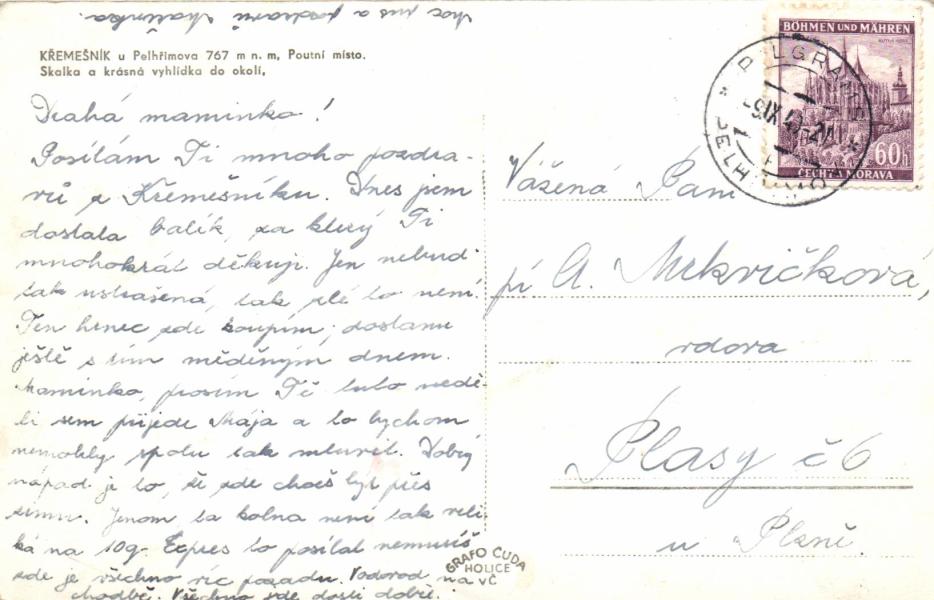 KŘEMEŠNÍK u Pelhřimova 767 m n. m. Poutní místo.
Skalka a krásná vyhlídka do okolí,
Drahá maminko!
Posílám Ti mnoho pozdra-
vů z Křemešníku. Dnes jsem
dostala balík, za který Ti
mnohokrát děkuji. Jen nebuď
tak ustrašená, tak zlé to není.
Ten hrnec zde koupím, dostanu
ještě s tím měděným dnem.
Maminko, prosím Tě tuto nedě-
li sem přijede Mája a to bychom
nemohly spolu tak mluvit. Dobrý
nápad je to, že zde chceš být přes
zimu. Jenom ta kolna není tak veli-
ká na 10q. Expres to posílat nemusíš
zde je všechno víc pozadu. Vodovod na vč
chodbě. Všechno zde dosti dobré.
pus a pozdravů
BÖHMEN UND MÄHREN
60h
ČECHY A MORAVA
PILGRAMS
PELHŘIMOV
Vážená Paní
pí A. Mrkvičková,
vdova
Plasy č 6
u Plzně.
GRAFO ČUDA
HOLICE